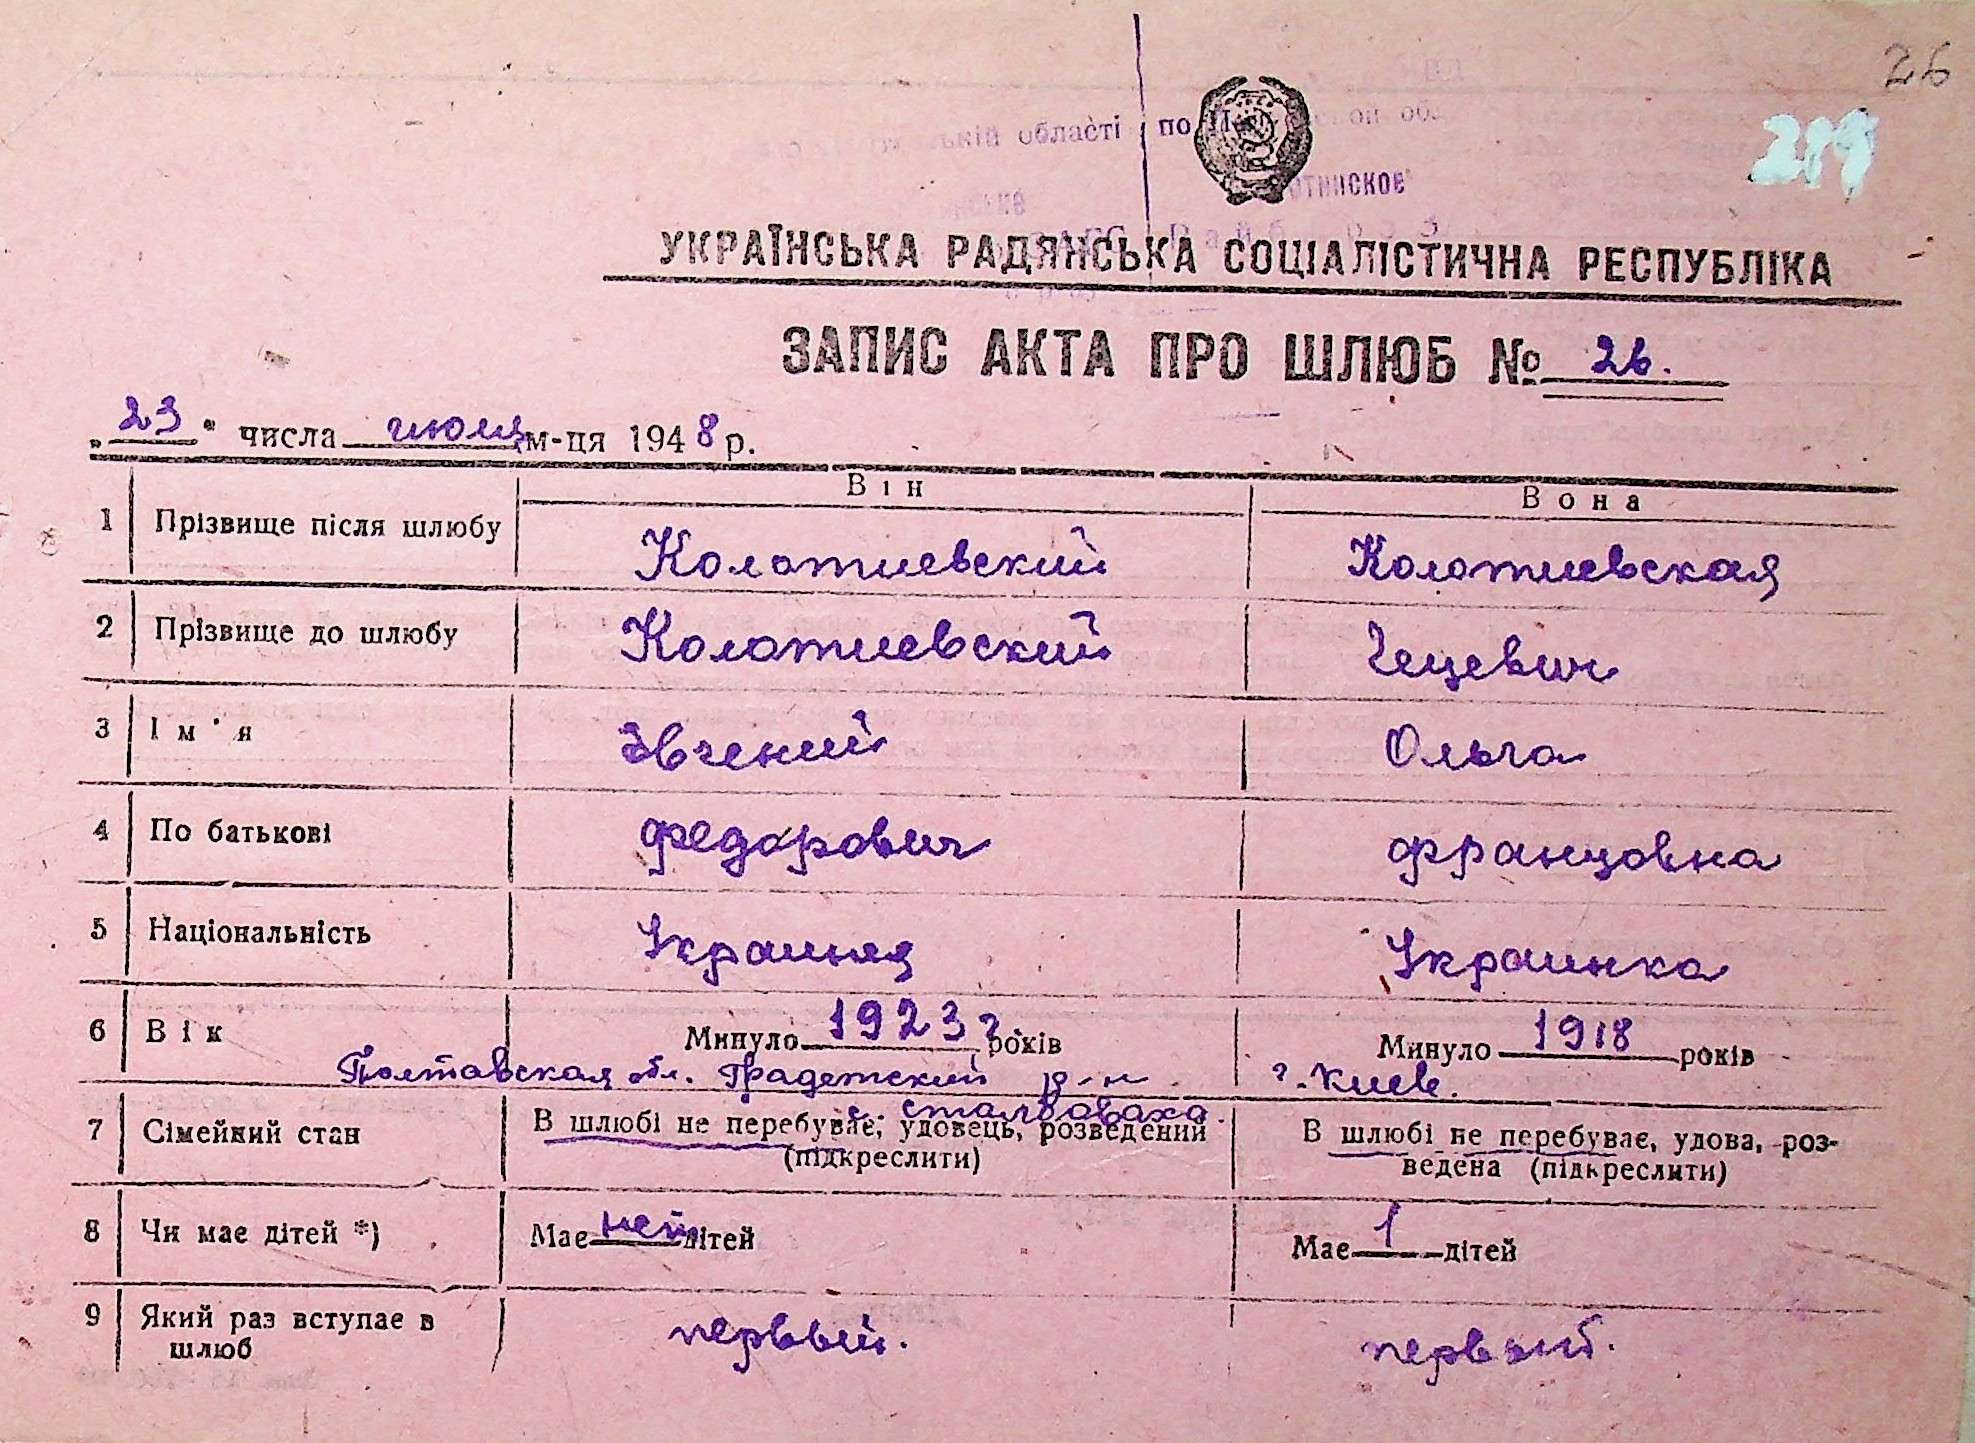 26
289
області по
УКРАЇНСЬКА РАДЯНСЬКА СОЦІАЛІСТИЧНА РЕСПУБЛІКА
ЗАПИС АКТА ПРО ШЛЮБ № 26.
„23" числа июля м-ця 1948 р.
Він Вона
1 Прізвище після шлюбу Колотиевский Колотиевская
2 Прізвище до шлюбу Колотиевский Чецевич
3 Ім'я Евгений Ольга
4 По батькові Федорович Францовна
5 Національність Украинец Украинка
6 Вік Минуло 1923 г років Минуло 1918 років
Полтавская обл. Градетский р-н г. Киев.
с. сталбоваха.
7 Сімейний стан В шлюбі не перебуває, удовець, розведений (підкреслити) В шлюбі не перебуває, удова, роз-
ведена (підкреслити)
8 Чи має дітей *) Має нет дітей Має 1 дітей
9 Який раз вступає в шлюб первый. первый.